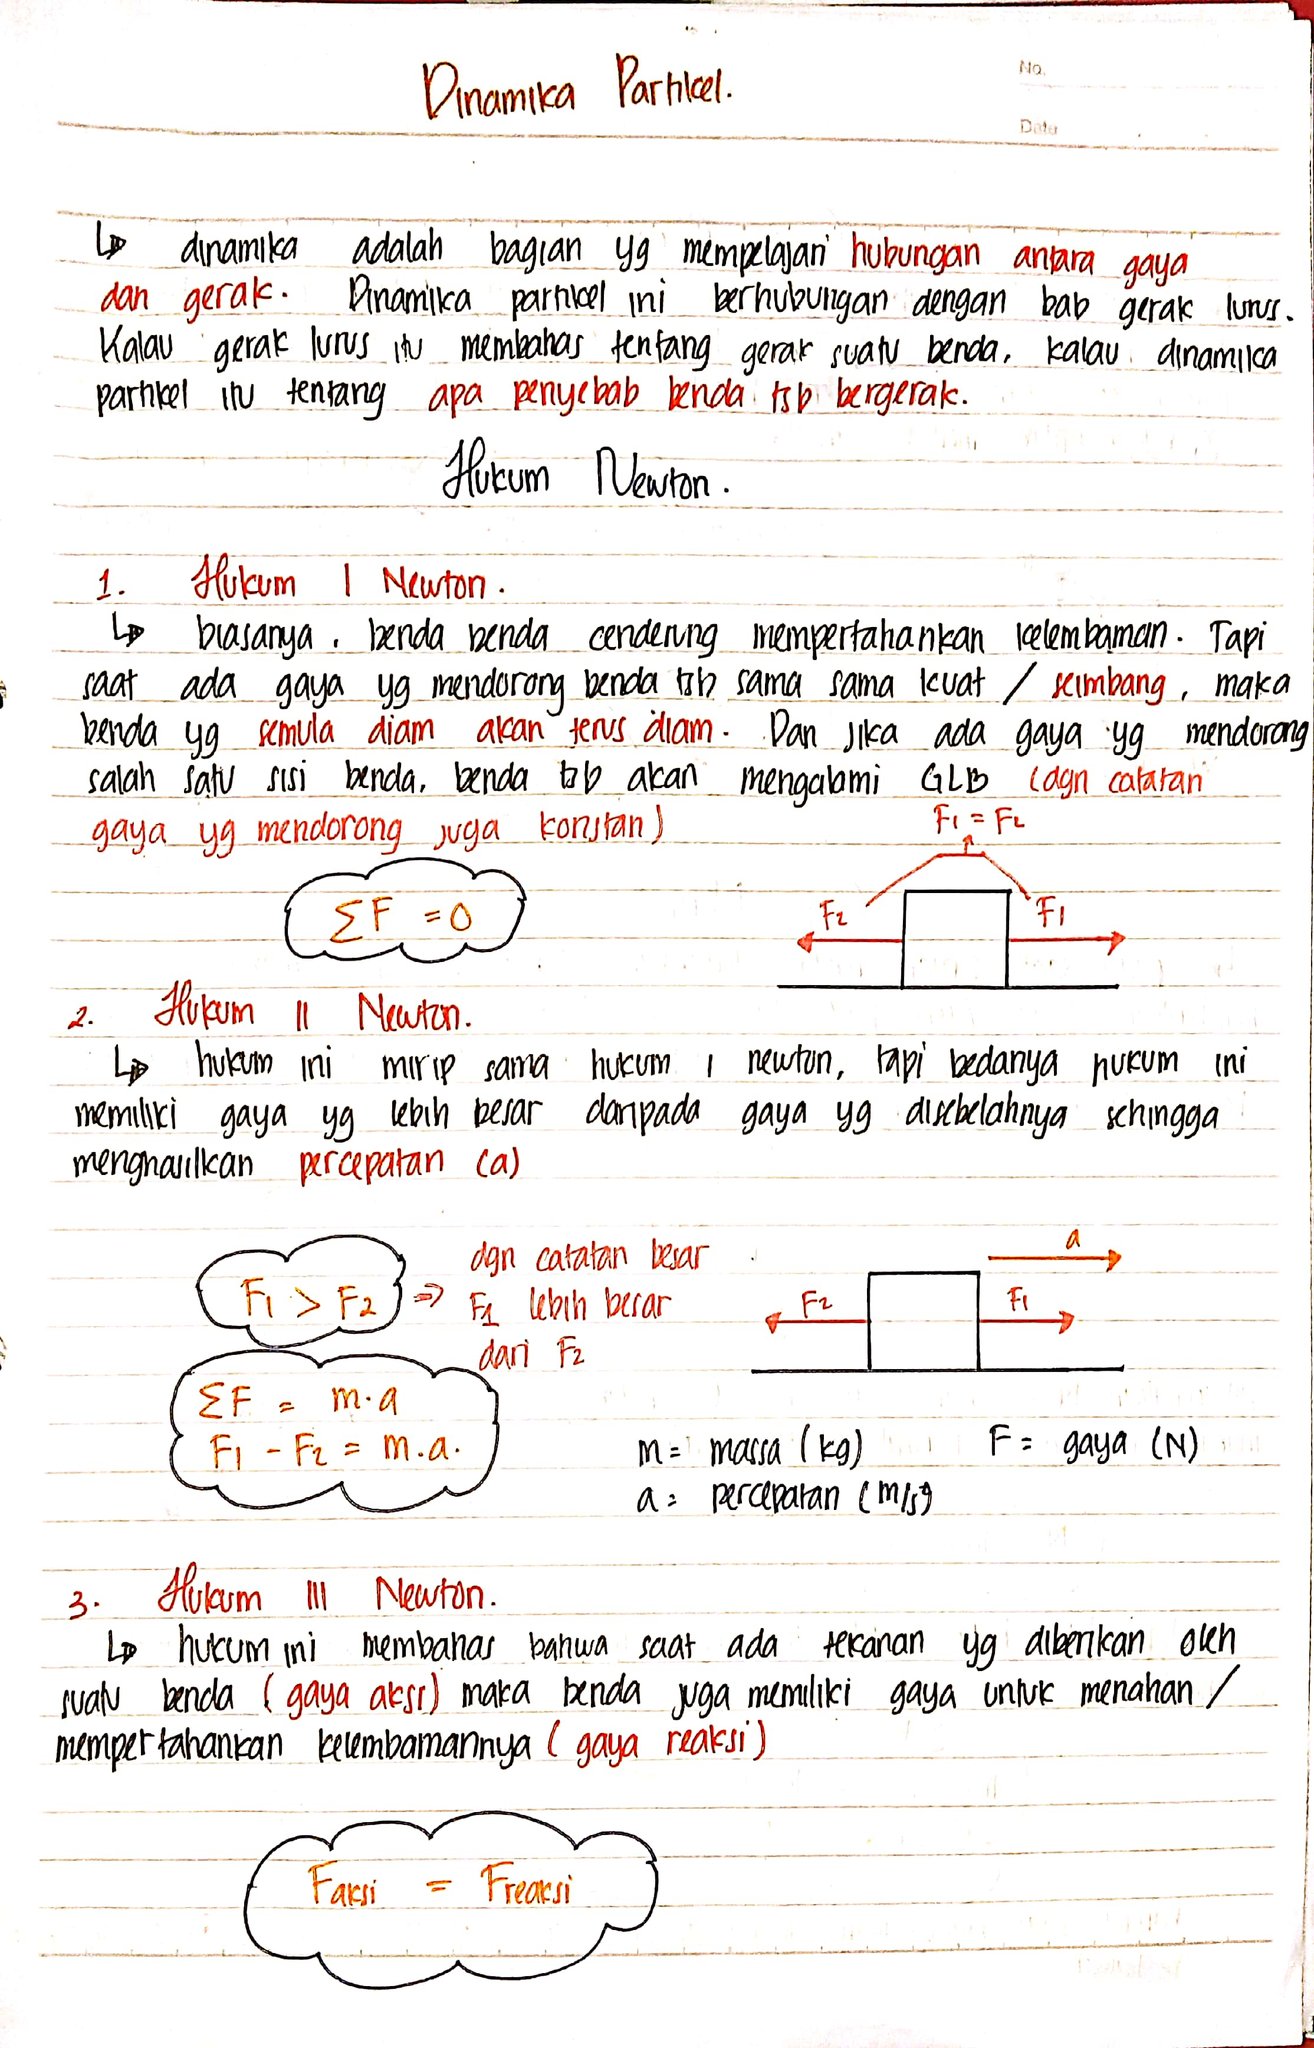 Dinamika Partikel.
No.
Date
↳ dinamika adalah bagian yg mempelajari hubungan antara gaya
dan gerak. Dinamika partikel ini berhubungan dengan bab gerak lurus.
Kalau gerak lurus itu membahas tentang gerak suatu benda, kalau dinamika
partikel itu tentang apa penyebab benda tsb bergerak.
Hukum Newton.
1. Hukum I Newton.
↳ biasanya, benda benda cenderung mempertahankan kelembaman. Tapi
saat ada gaya yg mendorong benda tsb sama sama kuat / seimbang, maka
benda yg semula diam akan terus diam. Dan jika ada gaya yg mendorong
salah satu sisi benda, benda tsb akan mengalami GLB (dgn catatan
gaya yg mendorong juga konstan)
F1 = F2
ΣF = 0
F2 F1
2. Hukum II Newton.
↳ hukum ini mirip sama hukum I newton, tapi bedanya hukum ini
memiliki gaya yg lebih besar daripada gaya yg disebelahnya sehingga
menghasilkan percepatan (a)
F1 > F2 ⇒ dgn catatan besar
F1 lebih besar
dari F2
a
F2 F1
ΣF = m.a
F1 - F2 = m.a.
m = massa (kg) F = gaya (N)
a = percepatan (m/s²)
3. Hukum III Newton.
↳ hukum ini membahas bahwa saat ada tekanan yg diberikan oleh
suatu benda (gaya aksi) maka benda juga memiliki gaya untuk menahan /
mempertahankan kelembamannya (gaya reaksi)
Faksi = Freaksi